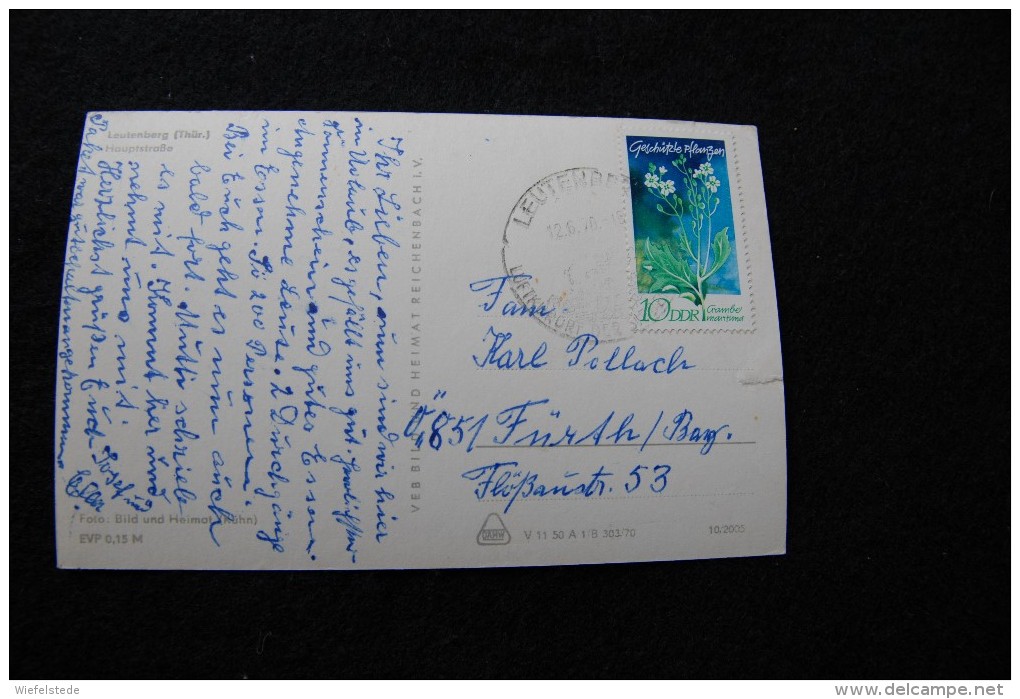 Leutenberg (Thür.)
Hauptstraße
Ihr Lieben, nun sind wir hier
im Urlaub, es gefällt uns gut.
und gutes Essen.
angenehme 2 Durchgänge
im Essen. So 200 Personen.
Bei Euch geht es nun auch
bald fort. Mutti schrieb
es mit. Kommt hier und
nehmt uns mit.
Herzlichst grüßen Euch Josef und
Paket war gut
Foto: Bild und Heimat (Kühn)
EVP 0,15 M
VEB BILD UND HEIMAT REICHENBACH I. V.
LEUTENBERG
12.6.70
LUFTKURORT DER
Geschützte Pflanzen
10 DDR Crambe
maritima
Fam.
Karl Pollach
"851 Fürth/Bay.
Flößaustr. 53
V 11 50 A 1/B 303/70
10/2005
Wiefelstede
delcampe.net